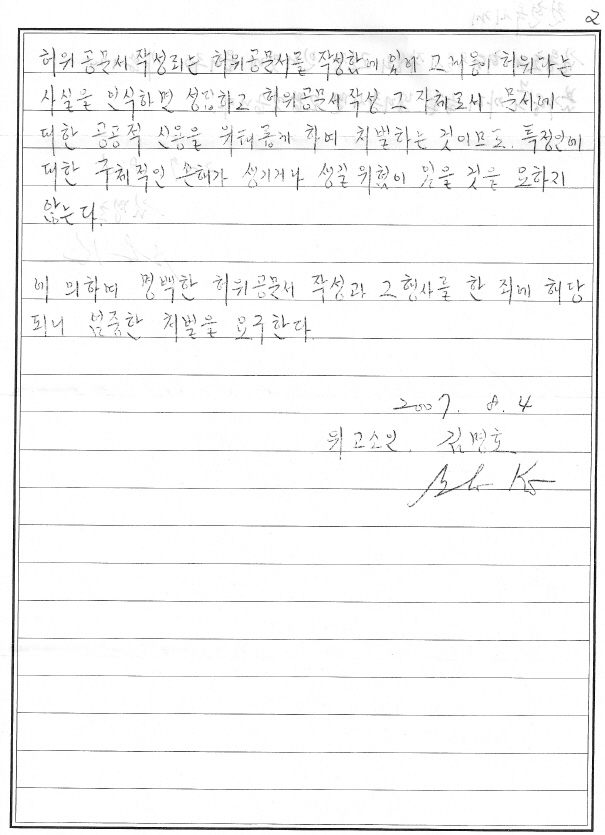 2
허위공문서작성죄는 허위공문서를 작성함에 있어 그 내용이 허위라는
사실을 인식하면 성립하고 허위공문서작성 그 자체로서 문서에
대한 공공적 신용을 위태롭게 하여 처벌하는 것이므로, 특정인에
대한 구체적인 손해가 생기거나 생길 위험이 있을 것을 요하지
않는다.
에 의하여 명백한 허위공문서 작성과 그 행사를 한 죄에 해당
되니 엄중한 처벌을 요구한다.
2007. 8. 4
위 고소인. 김명호